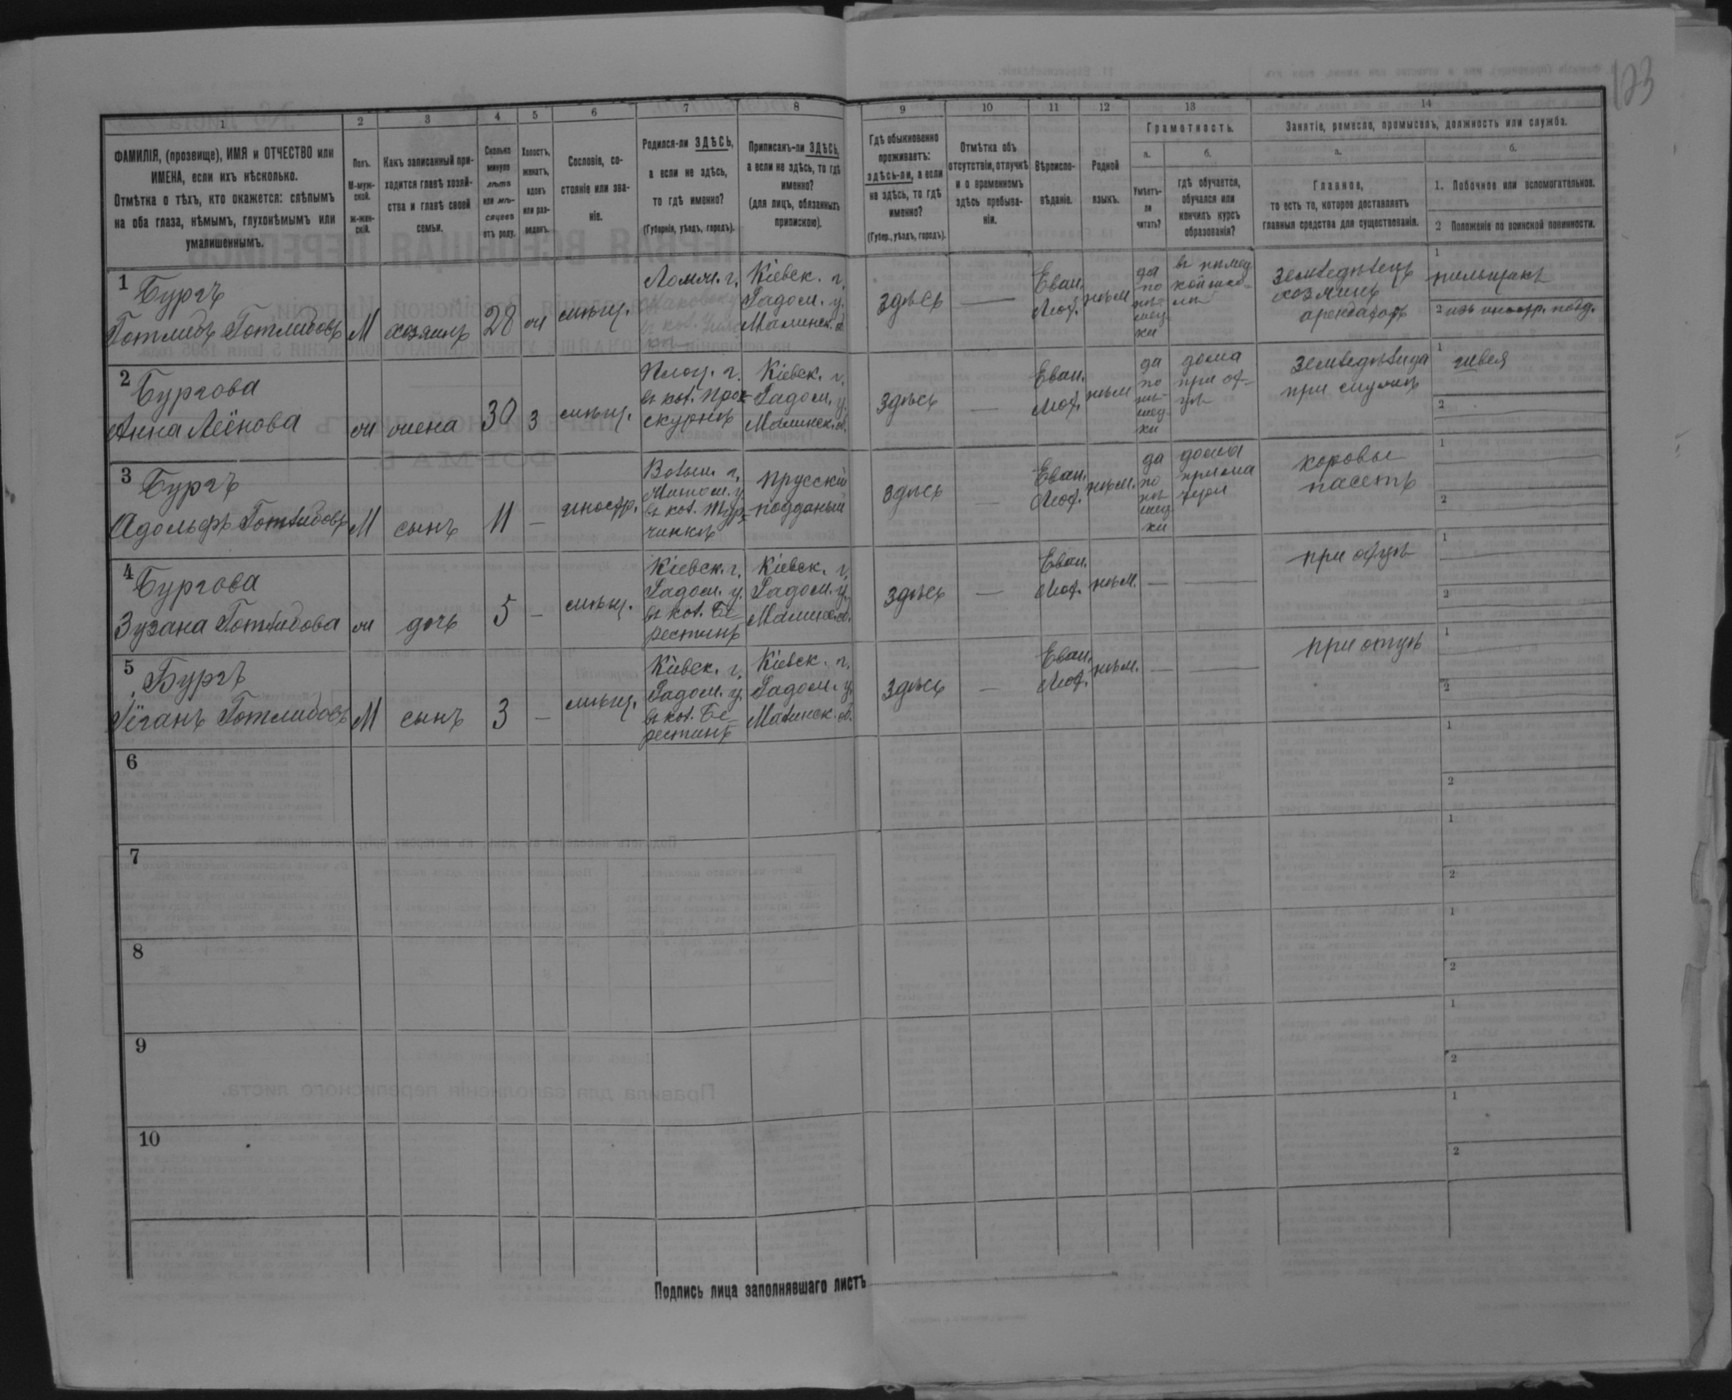 123
1 2 3 4 5 6 7 8 9 10 11 12 13 14
ФАМИЛІЯ, (прозвище), ИМЯ и ОТЧЕСТВО или
ИМЕНА, если ихъ нѣсколько.
Отмѣтка о тѣхъ, кто окажется: слѣпымъ
на оба глаза, нѣмымъ, глухонѣмымъ или
умалишеннымъ.
Полъ.
М-муж-
ской.
ж-жен-
скій.
Какъ записанный при-
ходится главѣ хозяй-
ства и главѣ своей
семьи.
Сколько
минуло
лѣтъ
или мѣ-
сяцевъ
отъ роду.
Холостъ,
женатъ,
вдовъ
или раз-
веденъ.
Сословіе, со-
стояніе или зва-
ніе.
Родился-ли ЗДѢСЬ,
а если не здѣсь,
то гдѣ именно?
(Губернія, уѣздъ, городъ).
Приписанъ-ли ЗДѢСЬ,
а если не здѣсь, то гдѣ
именно?
(для лицъ, обязанныхъ
припискою).
Гдѣ обыкновенно
проживаетъ:
здѣсь-ли, а если
не здѣсь, то гдѣ
именно?
(Губер., уѣздъ, городъ).
Отмѣтка объ
отсутствіи, отлучкѣ
и о временномъ
здѣсь пребыва-
ніи.
Вѣроиспо-
вѣданіе.
Родной
языкъ.
Грамотность.
а.
Умѣетъ-
ли
читать?
б.
гдѣ обучается,
обучался или
кончилъ курсъ
образованія?
Занятіе, ремесло, промыселъ, должность или служба.
а.
Главное,
то есть то, которое доставляетъ
главныя средства для существованія.
б.
1. Побочное или вспомогательное.
2 Положеніе по воинской повинности.
1 Бургъ
Готлибъ Готлибовъ М хозяинъ 28 ж мѣщ.
Ломж. г.
Кіевск. г.
Радом. у.
Малинск. в.
здѣсь —
Еван.
Лют.
нѣм.
да
по
нѣ-
мец-
ки
въ нѣмец
кой шко-
лѣ
земледѣлецъ
хозяинъ
арендаторъ
1
пильщикъ
2
2 Бургова
Анна Леёнова ж жена 30 з мѣщ.
Плоц. г.
въ кол.
Кіевск. г.
Радом. у.
Малинск. в.
здѣсь —
Еван.
Лют.
нѣм
да
по
нѣ-
мец-
ки
дома
при от-
цѣ
земледѣлица
при мужѣ
1 швея
2
3 Бургъ
Адольфъ Готлибовъ М сынъ 11 — иностр.
Волын. г.
Житом. у.
въ кол.
прусскій
подданый
здѣсь —
Еван.
Лют.
нѣм.
да
по
нѣ-
мец-
ки
дома
при ма
тери
коровы
пасетъ
1
2
4 Бургова
Зузана Готлибова ж дочь 5 — мѣщ.
Кіевск. г.
Радом. у.
въ кол. Бе-
рестинъ
Кіевск. г.
Радом. у.
Малинск. в.
здѣсь —
Еван.
Лют.
нѣм. — —
при отцѣ
1
2
5 Бургъ
Іёганъ Готлибовъ М сынъ 3 — мѣщ.
Кіевск. г.
Радом. у.
въ кол. Бе-
рестинъ
Кіевск. г.
Радом. у.
Малинск. в.
здѣсь —
Еван.
Лют.
нѣм. — —
при отцѣ
1
2
6
1
2
7
1
2
8
1
2
9
1
2
10
1
2
Подпись лица заполнявшаго листъ